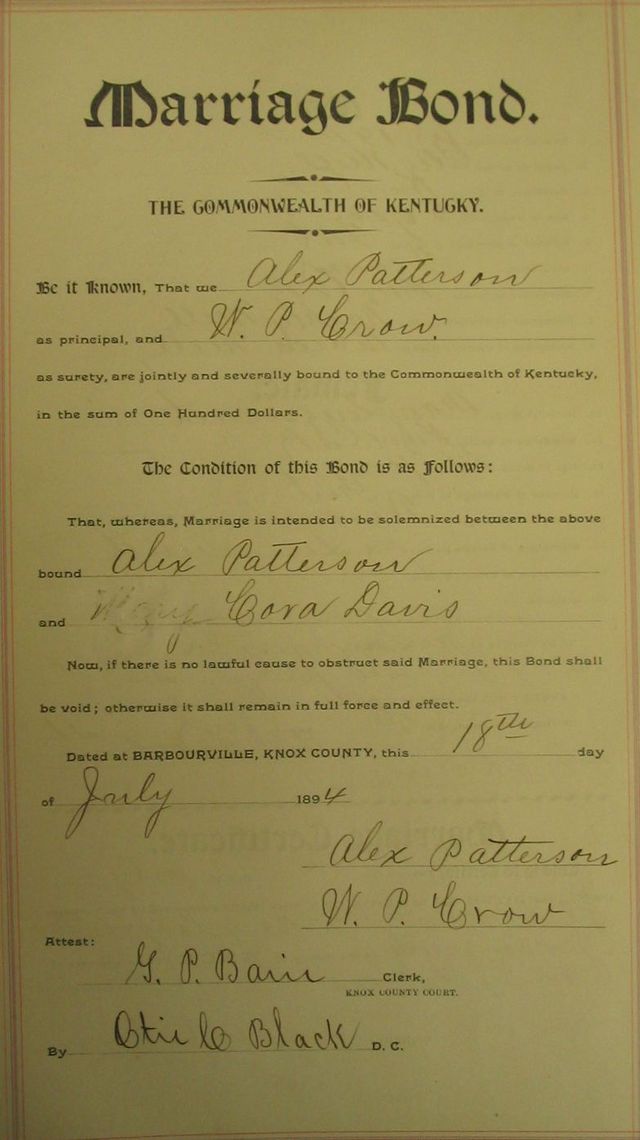 Marriage Bond.
THE COMMONWEALTH OF KENTUCKY.
Be it Known, That we Alex Patterson
as principal, and W. P. Crow.
as surety, are jointly and severally bound to the Commonwealth of Kentucky,
in the sum of One Hundred Dollars.
The Condition of this Bond is as Follows:
That, whereas, Marriage is intended to be solemnized between the above
bound Alex Patterson
and Cora Davis
Now, if there is no lawful cause to obstruct said Marriage, this Bond shall
be void; otherwise it shall remain in full force and effect.
Dated at BARBOURVILLE, KNOX COUNTY, this 18th day
of July 1894
Alex Patterson
W. P. Crow
Attest:
G. P. Bain Clerk,
KNOX COUNTY COURT.
By Black D. C.